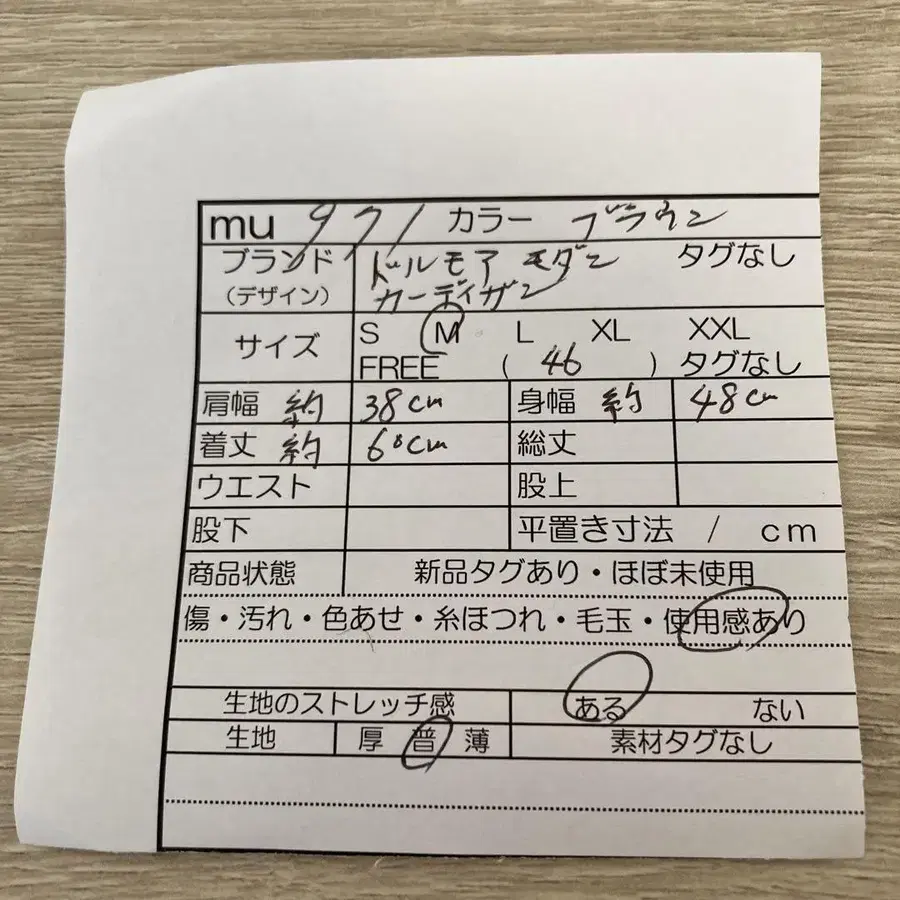 mu 971 カラー ブラウン
ブランド ドルモア モダン タグなし
(デザイン) カーディガン
サイズ S M L XL XXL
FREE ( 46 ) タグなし
肩幅 約 38cm 身幅 約 48cm
着丈 約 60cm 総丈
ウエスト 股上
股下 平置き寸法 / cm
商品状態 新品タグあり・ほぼ未使用
傷・汚れ・色あせ・糸ほつれ・毛玉・使用感あり
生地のストレッチ感 ある ない
生地 厚 普 薄 素材タグなし